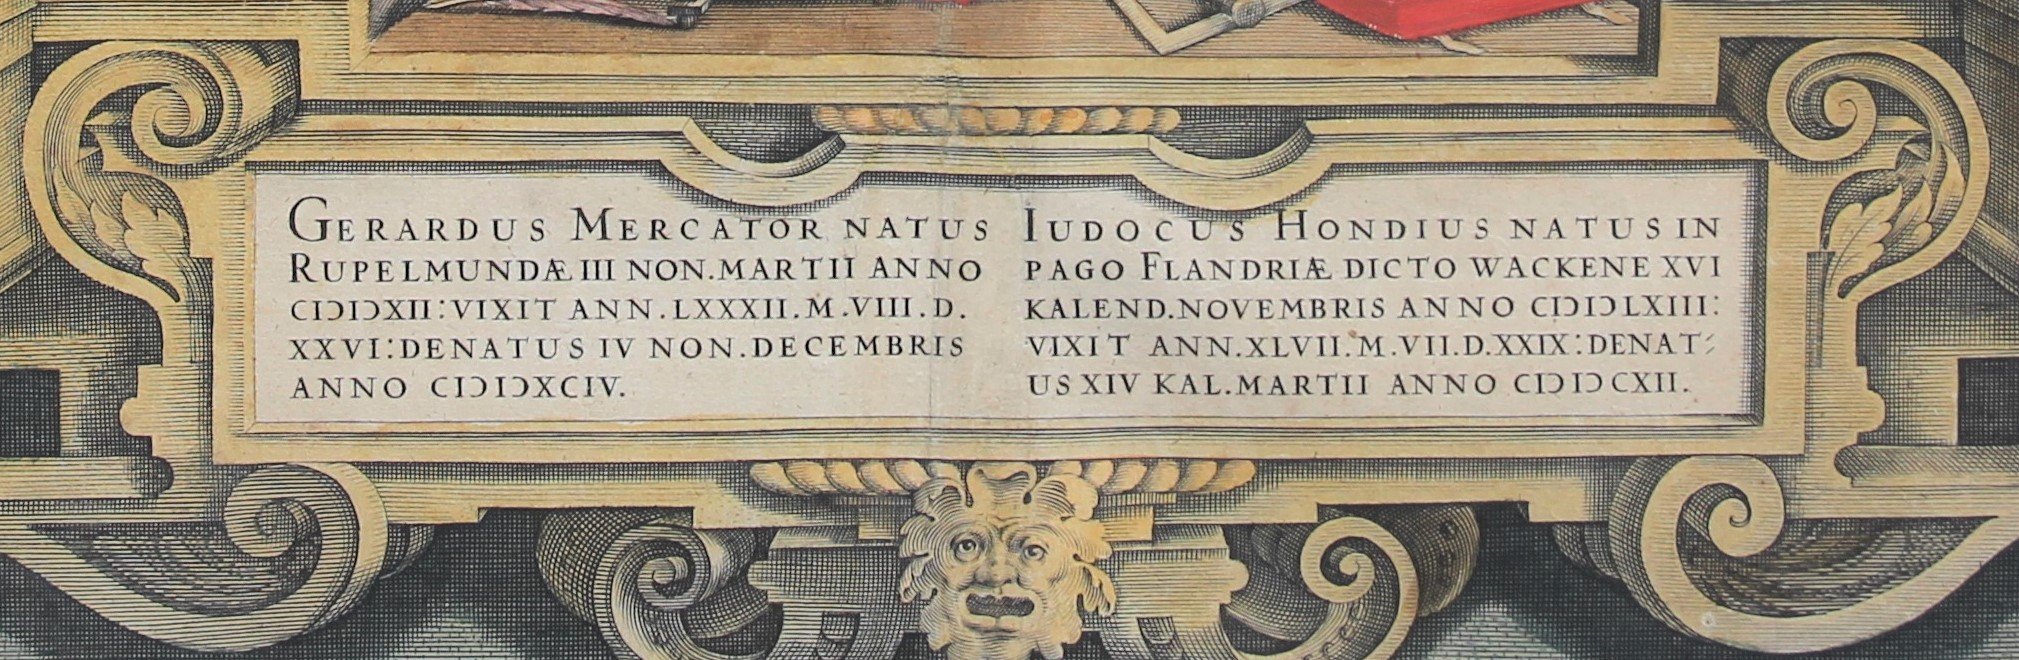 GERARDUS MERCATOR NATUS
RUPELMUNDÆ III NON.MARTII ANNO
CIƆIƆXII:VIXIT ANN.LXXXII.M.VIII.D.
XXVI:DENATUS IV NON.DECEMBRIS
ANNO CIƆIƆXCIV.
IUDOCUS HONDIUS NATUS IN
PAGO FLANDRIÆ DICTO WACKENE XVI
KALEND.NOVEMBRIS ANNO CIƆIƆLXIII:
VIXIT ANN.XLVII.M.VII.D.XXIX:DENAT-
US XIV KAL.MARTII ANNO CIƆIƆCXII.